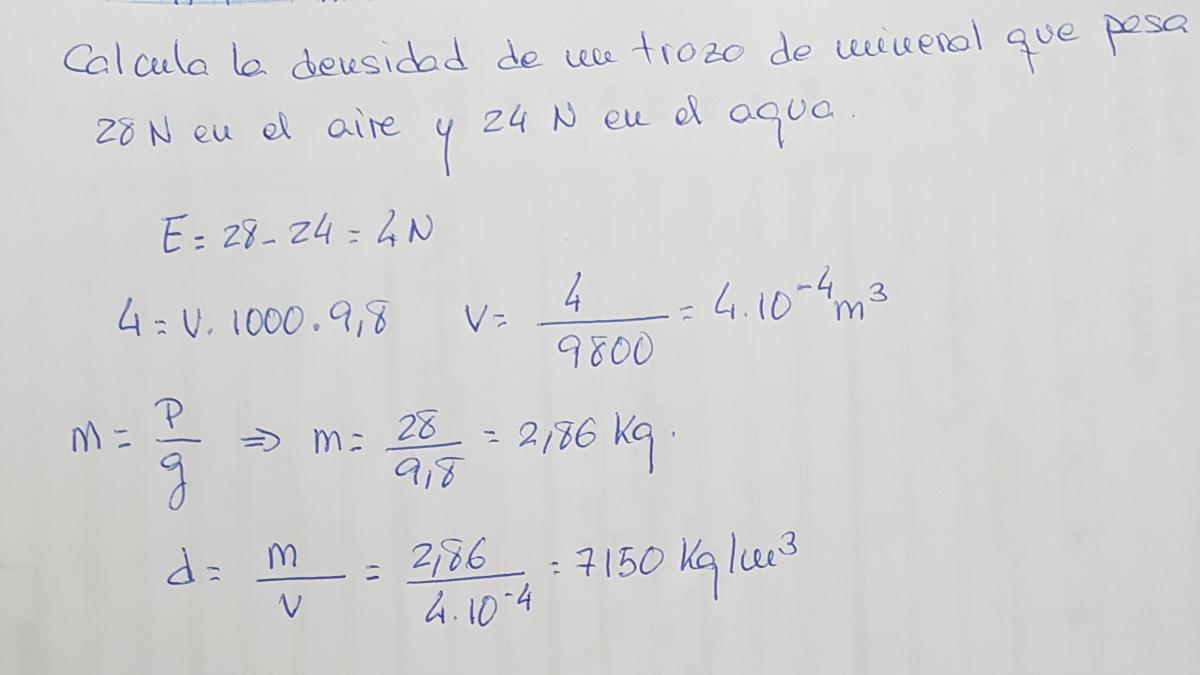 Calcula la densidad de un trozo de mineral que pesa
28 N en el aire y 24 N en el agua.
E = 28 - 24 = 4 N
4 = V. 1000 . 9,8 V = 4 / 9800 = 4.10⁻⁴ m³
m = P / g ⇒ m = 28 / 9,8 = 2,86 Kg.
d = m / v = 2,86 / 4.10⁻⁴ = 7150 Kg/m³